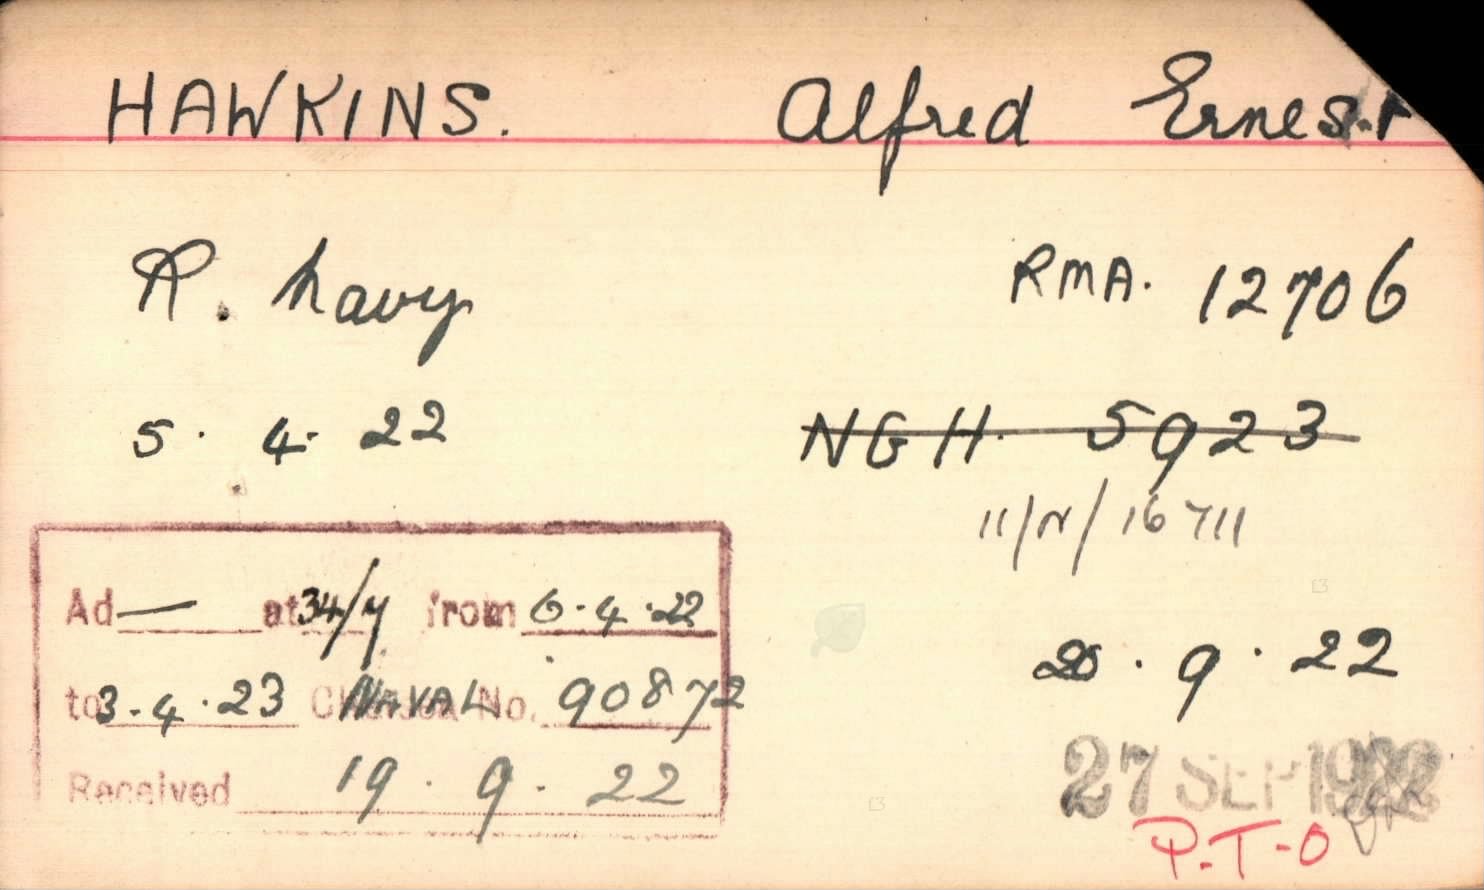 HAWKINS. Alfred Ernest
R. Navy RMA. 12706
5. 4. 22 NGH. 5923
11/N/16711
Ad — at 34/7 from 6.4.22
to 3.4.23 Chelsea NAVAL No. 90872
Received 19.9.22
20.9.22
27 SEP 1922
P.T-O